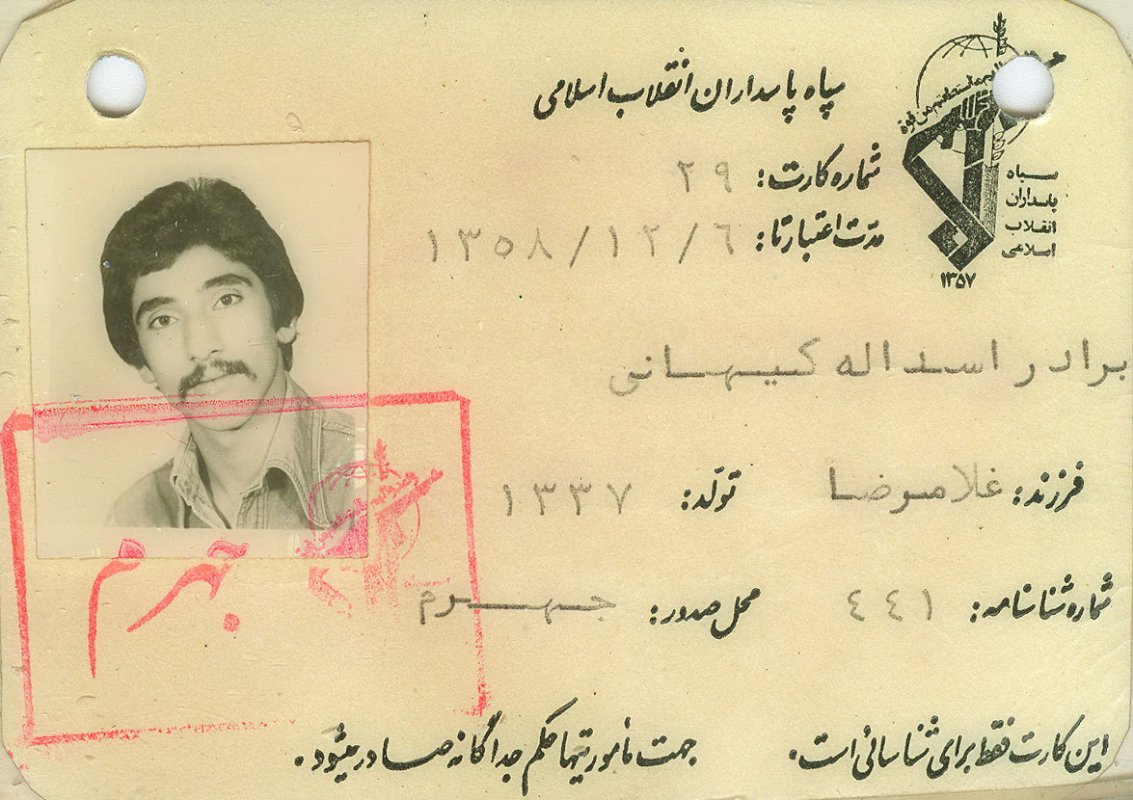 سپاه پاسداران انقلاب اسلامی
شماره کارت: ۲۹
مدت اعتبار تا: ۱۳۵۸/۱۲/۶
سپاه
پاسداران
انقلاب
اسلامی
۱۳۵۷
برادر اسداله کیهانی
فرزند: غلامرضا تولد: ۱۳۳۷
شماره شناسنامه: ۴۴۱ محل صدور: جهرم
جهرم
این کارت فقط برای شناسائی است. جهت مأموریتها حکم جداگانه صادر میشود.